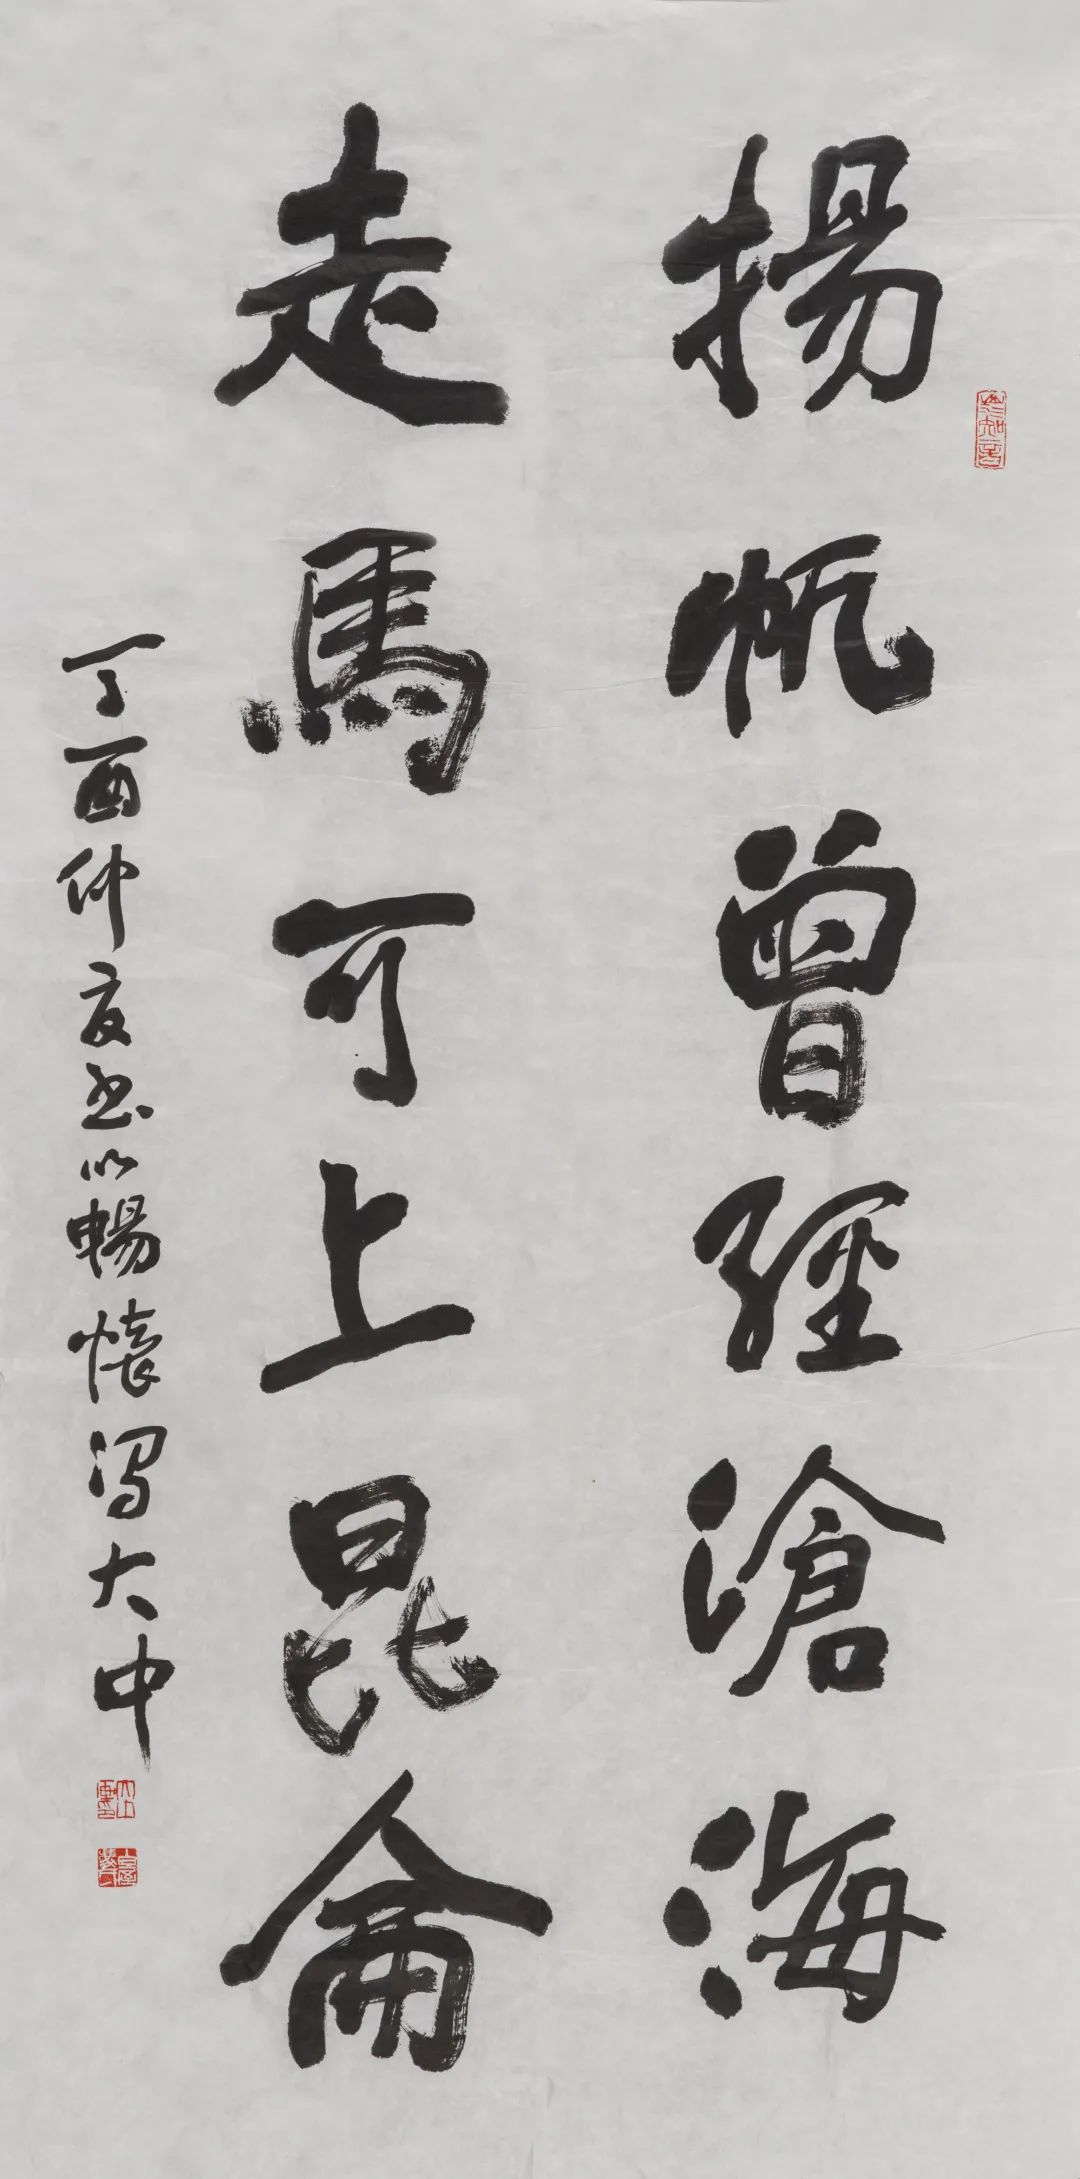 揚帆曾經滄海
走馬可上昆侖
丁酉仲夏書以暢懷馮大中